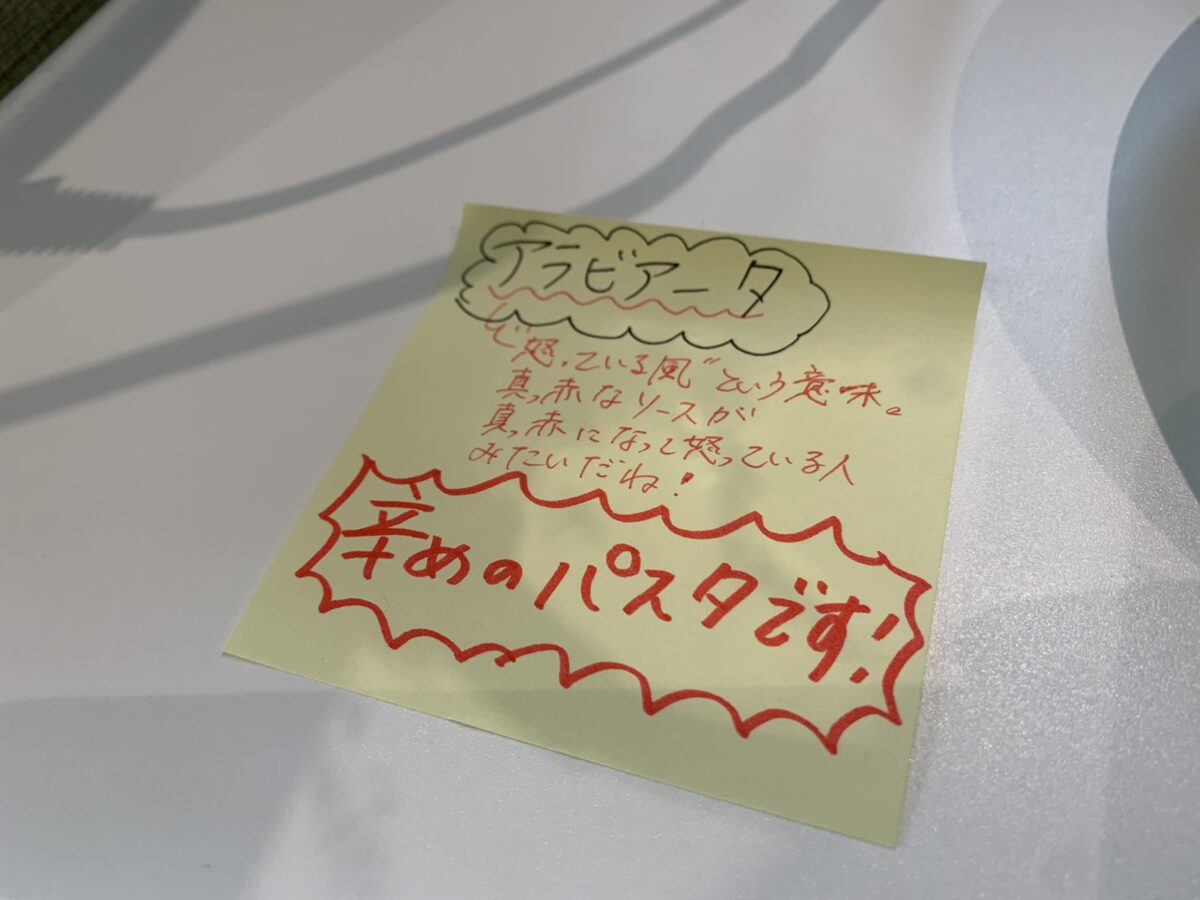 アラビアータ
"怒っている風"という意味。
真っ赤なソースが
真っ赤になって怒っている人
みたいだね!
辛めのパスタです!